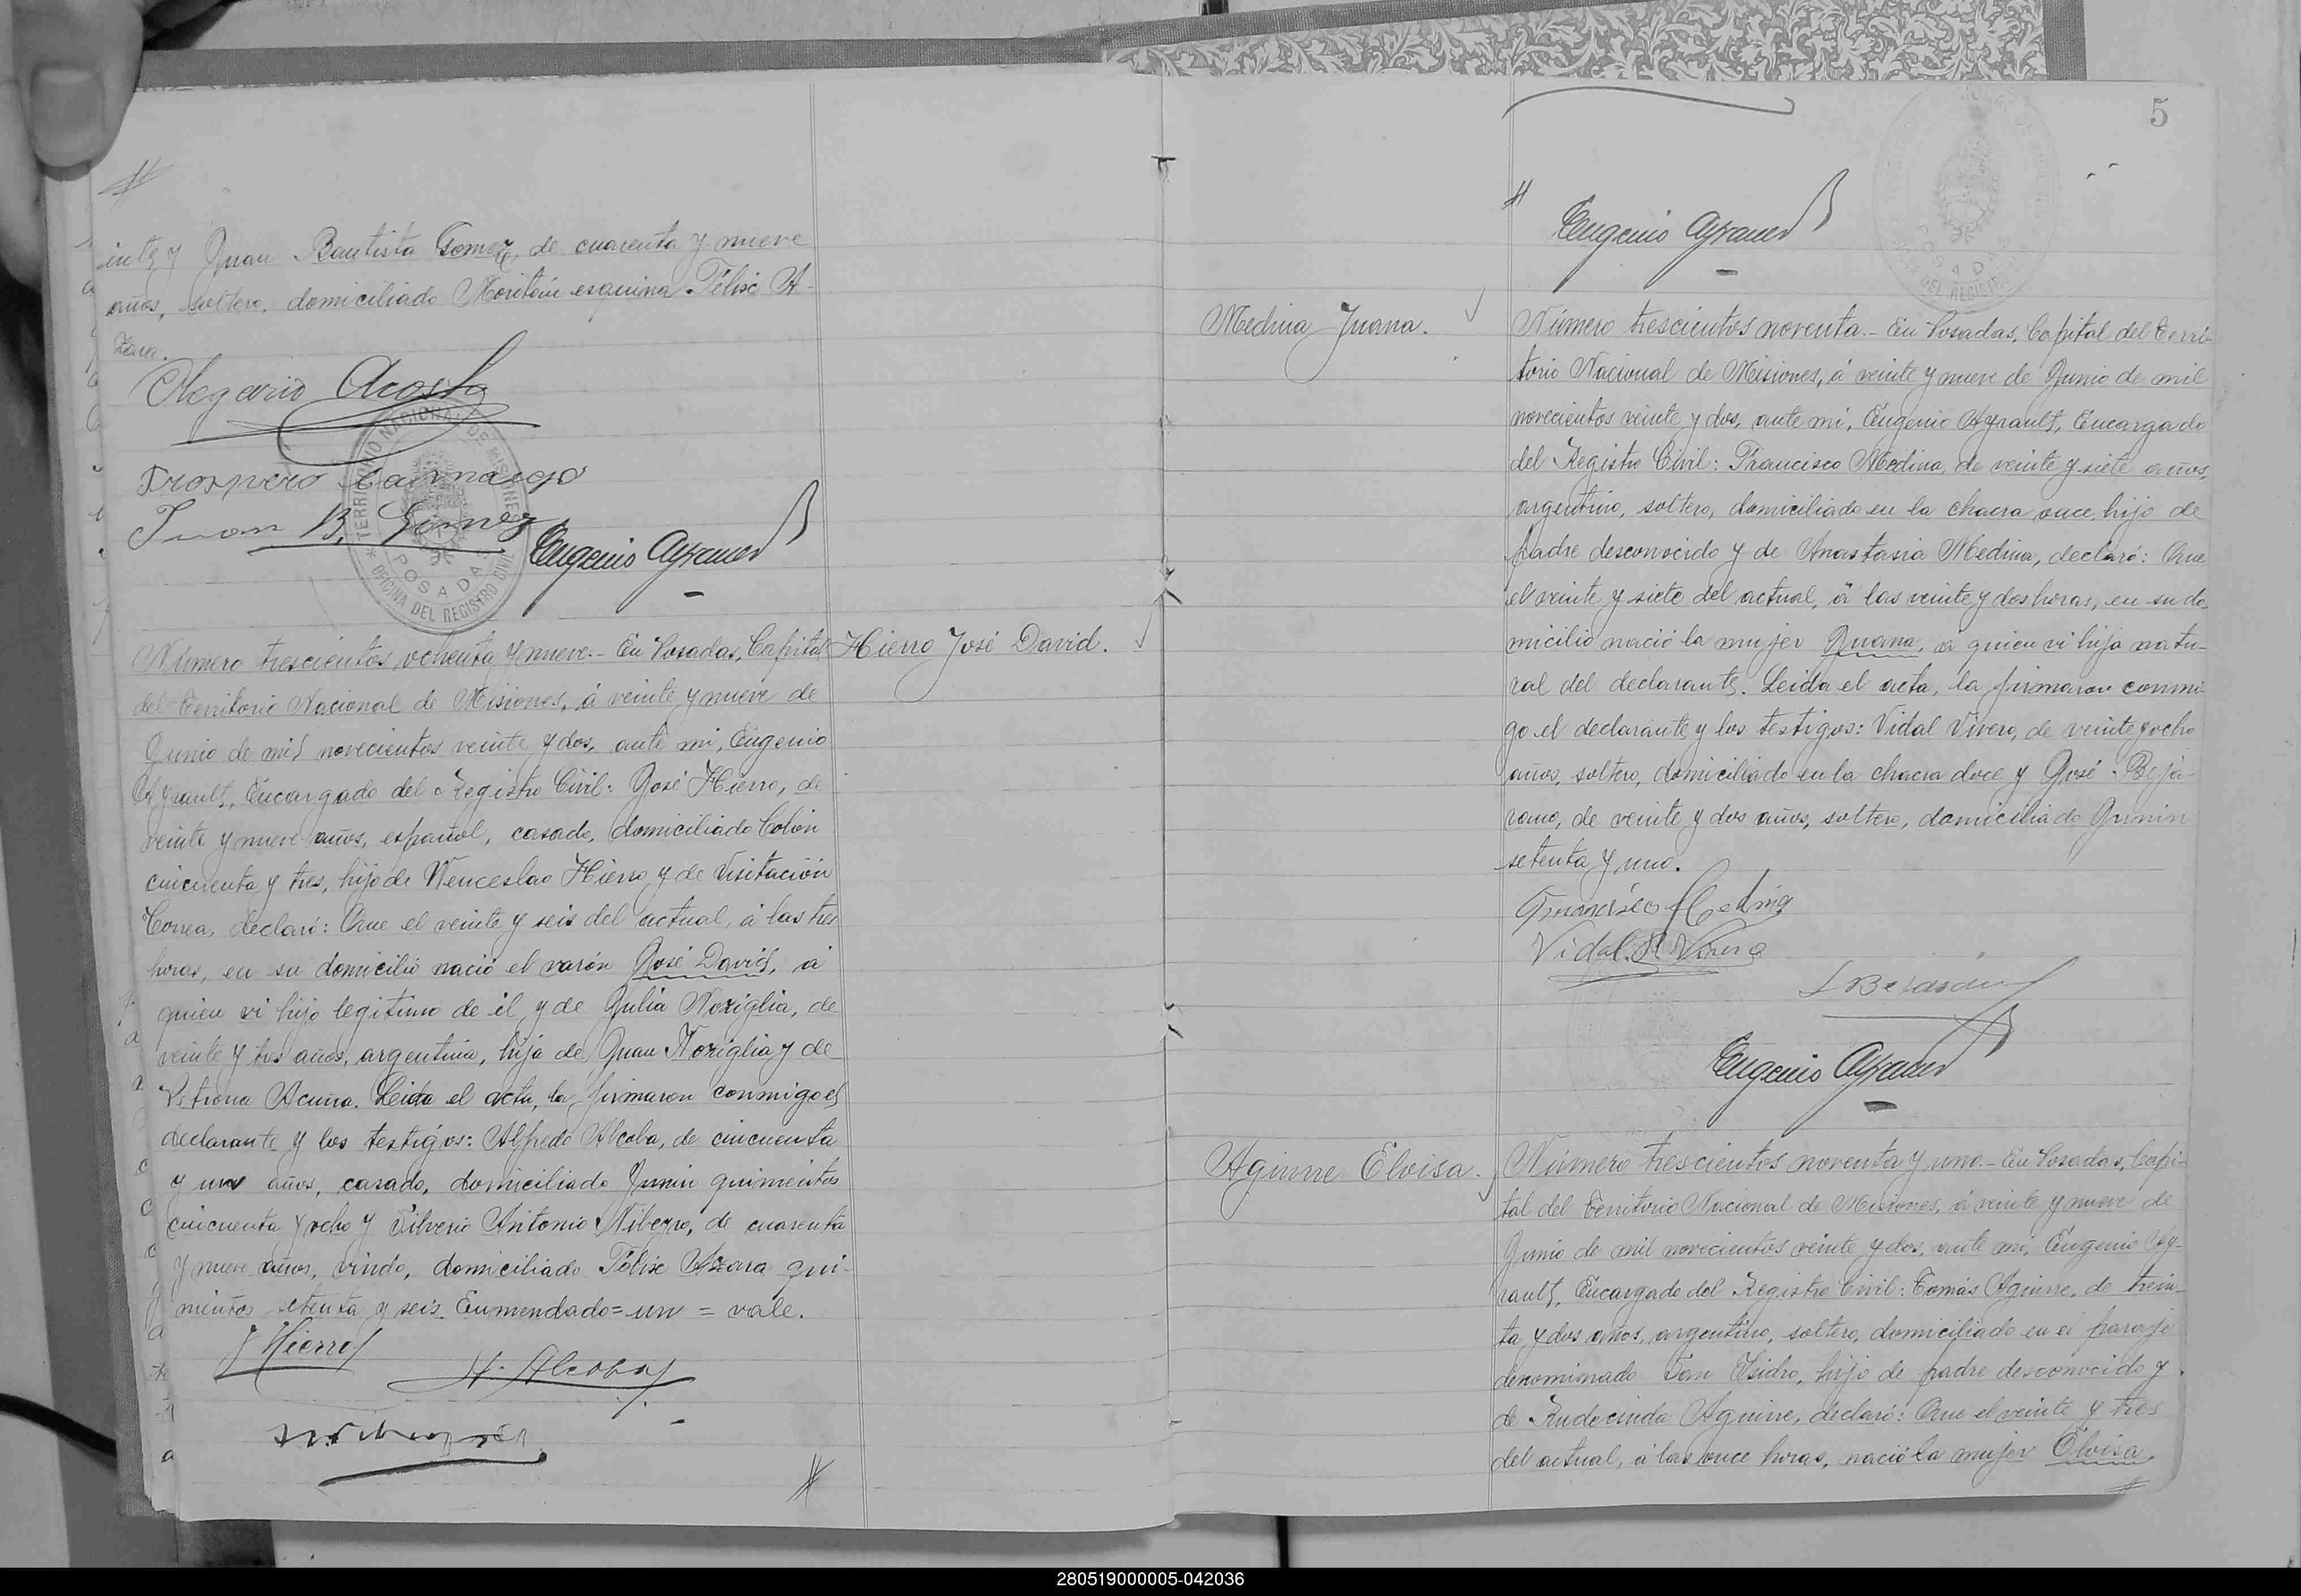 y Juan Bautista Gomez, de cuarenta y nueve
años, soltero, domiciliado esquina Félix A-
zara.
Olegario Acosta
Prospero Camargo
Juan B. Gómez
Eugenio Ayrault
TERRITORIO NACIONAL DE MISIONES
POSADAS
OFICINA DEL REGISTRO CIVIL
Número trescientos ochenta y nueve.- En Posadas, Capital
Hierro José David.
del Territorio Nacional de Misiones, á veinte y nueve de
Junio de mil novecientos veinte y dos, ante mi, Eugenio
Ayrault, Encargado del Registro Civil: José Hierro, de
veinte y nueve años, español, casado, domiciliado Colón
cincuenta y tres, hijo de Wenceslao Hierro y de Visitación
Correa, declaró: Que el veinte y seis del actual, á las tres
horas, en su domicilio nació el varón José David, á
quien vi hijo legitimo de él y de Julia Noziglia, de
veinte y tres años, argentina, hija de Juan Noziglia y de
Petrona Acuña. Leida el acta, la firmaron conmigo el
declarante y los testigos: Alfredo Alcoba, de cincuenta
y un años, casado, domiciliado Junin quinientos
cincuenta y ocho y Silverio Antonio de cuarenta
y nueve años, viudo, domiciliado Félix Azara qui-
nientos setenta y seis. Enmendado = un = vale.
J Hierro
A. Alcoba
5
Eugenio Ayrault
POSADAS
DEL REGISTRO
Medina Juana.
Número trescientos noventa.- En Posadas, Capital del Terri-
torio Nacional de Misiones, á veinte y nueve de Junio de mil
novecientos veinte y dos, ante mi, Eugenio Ayrault, Encargado
del Registro Civil: Francisco Medina, de veinte y siete años,
argentino, soltero, domiciliado en la chacra once, hijo de
padre desconocido y de Anastasia Medina, declaró: Que
el veinte y siete del actual, á las veinte y dos horas, en su do-
micilio nació la mujer Juana, á quien vi hija natu-
ral del declarante. Leida el acta, la firmaron conmi-
go el declarante y los testigos: Vidal Vivero, de veinte y ocho
años, soltero, domiciliado en la chacra doce y José Beja-
rano, de veinte y dos años, soltero, domiciliado Junin
setenta y uno.
Francisco Medina
Vidal Vivero
Eugenio Ayrault
Aguirre Eloisa.
Número trescientos noventa y uno.- En Posadas, Capi-
tal del Territorio Nacional de Misiones, á veinte y nueve de
Junio de mil novecientos veinte y dos, ante mi, Eugenio Ay-
rault, Encargado del Registro Civil: Tomás Aguirre, de trein-
ta y dos años, argentino, soltero, domiciliado en el paraje
denominado San Isidro, hijo de padre desconocido y
de Rudecinda Aguirre, declaró: Que el veinte y tres
del actual, á las once horas, nació la mujer Eloisa,
280519000005-042036